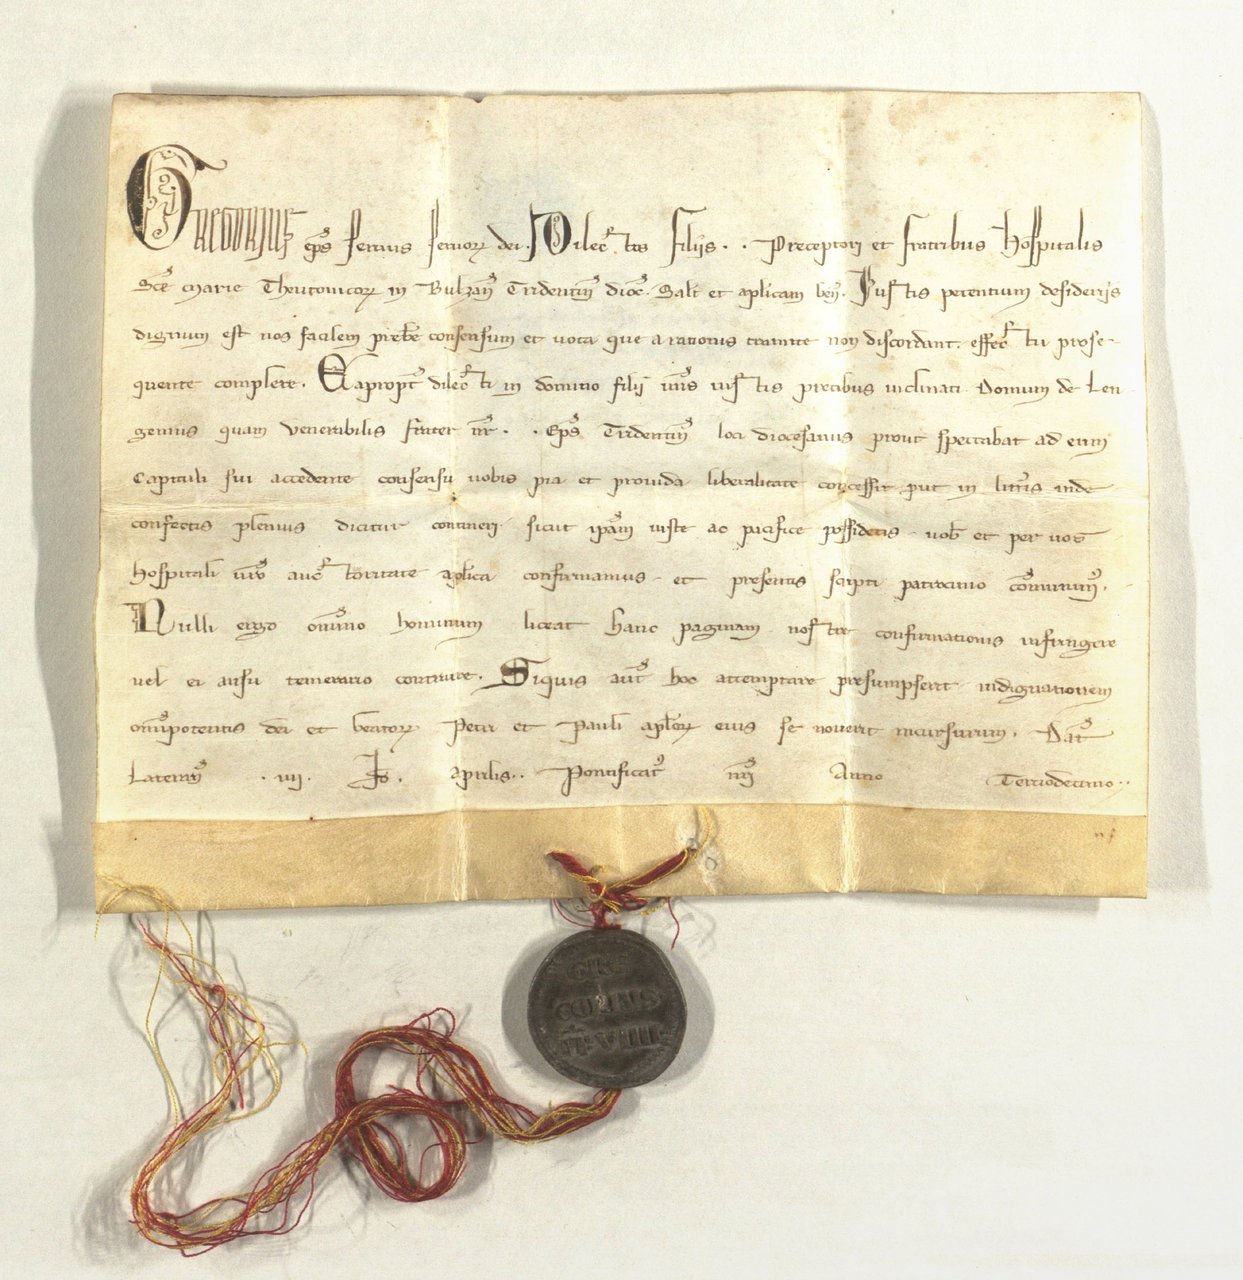 Gregorius ep̄s seruus seruoꝝ dei. Dilectis filiis . . Preceptori et fratribus Hospitalis
Sc̄e Marie Theutonicoꝝ in Bulzan̄ Tridentin̄ dioc̄. Salt̄ et aplicam ben̄. Iustis petentium desideriis
dignum est nos facilem preb̄e consensum et uota que a rationis tramite non discordant. effectu prose-
quente complere. Eapropt̄ dilecti in domino filij ur̄is iustis precibus inclinati Domum de Len
gemus quam venerabilis frater nr̄ . . Ep̄s Tridentin̄ loci diocesanus prout spectabat ad eum
Capituli sui accedente consensu uobis pia et prouida liberalitate concessit put in litt̄is inde
confectis plenius dicitur contineri sicut ip̄am iuste ac pacifice possidetis uob̄ et per uos
Hospitali ur̄o auctoritate ap̄lica confirmamus et presentis scripti patrocinio com̄unim̄.
Nulli ergo om̄ino hominum liceat hanc paginam nostre confirmationis infringere
uel ei ausu temerario contraire. Siquis aut̄ hoc attemptare presumpserit indignationem
om̄ipotentis dei et beatoꝝ Petri et Pauli ap̄loꝝ eius se nouerit incursurum. Dat̄
Lateran̄ . iii. Id. aprilis . . Pontificat̄ nr̄i Anno Terciodecimo . .
GRE
GORIUS
P̄P̄ VIIII